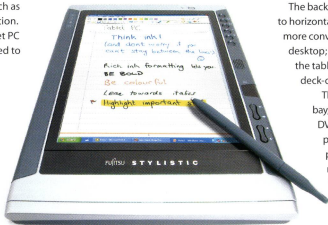 ch as
tion.
t PC
ed to
Tablet PC
Think ink!
(and don't worry if you
can't stay between the lines)
Rich ink formatting lets you
BE BOLD
Be colourful
Lean towards italics
Highlight important
FUJITSU STYLISTIC
The back
to horizontal
more conv
desktop;
the tabl
deck-c
Th
bay,
DV
p
p